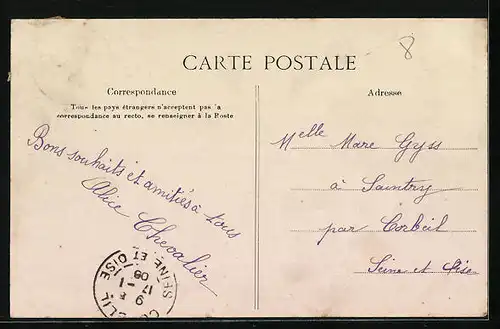 8
CARTE POSTALE
Correspondance
Tous les pays étrangers n'acceptent pas la
correspondance au recto, se renseigner à la Poste
Bons souhaits et amitiés à tous
Alice Chevalier
Adresse
Melle Mare Gyss
à Saintry
par Corbeil
Seine et Oise
SEINE ET OISE
9
17 - 1
09